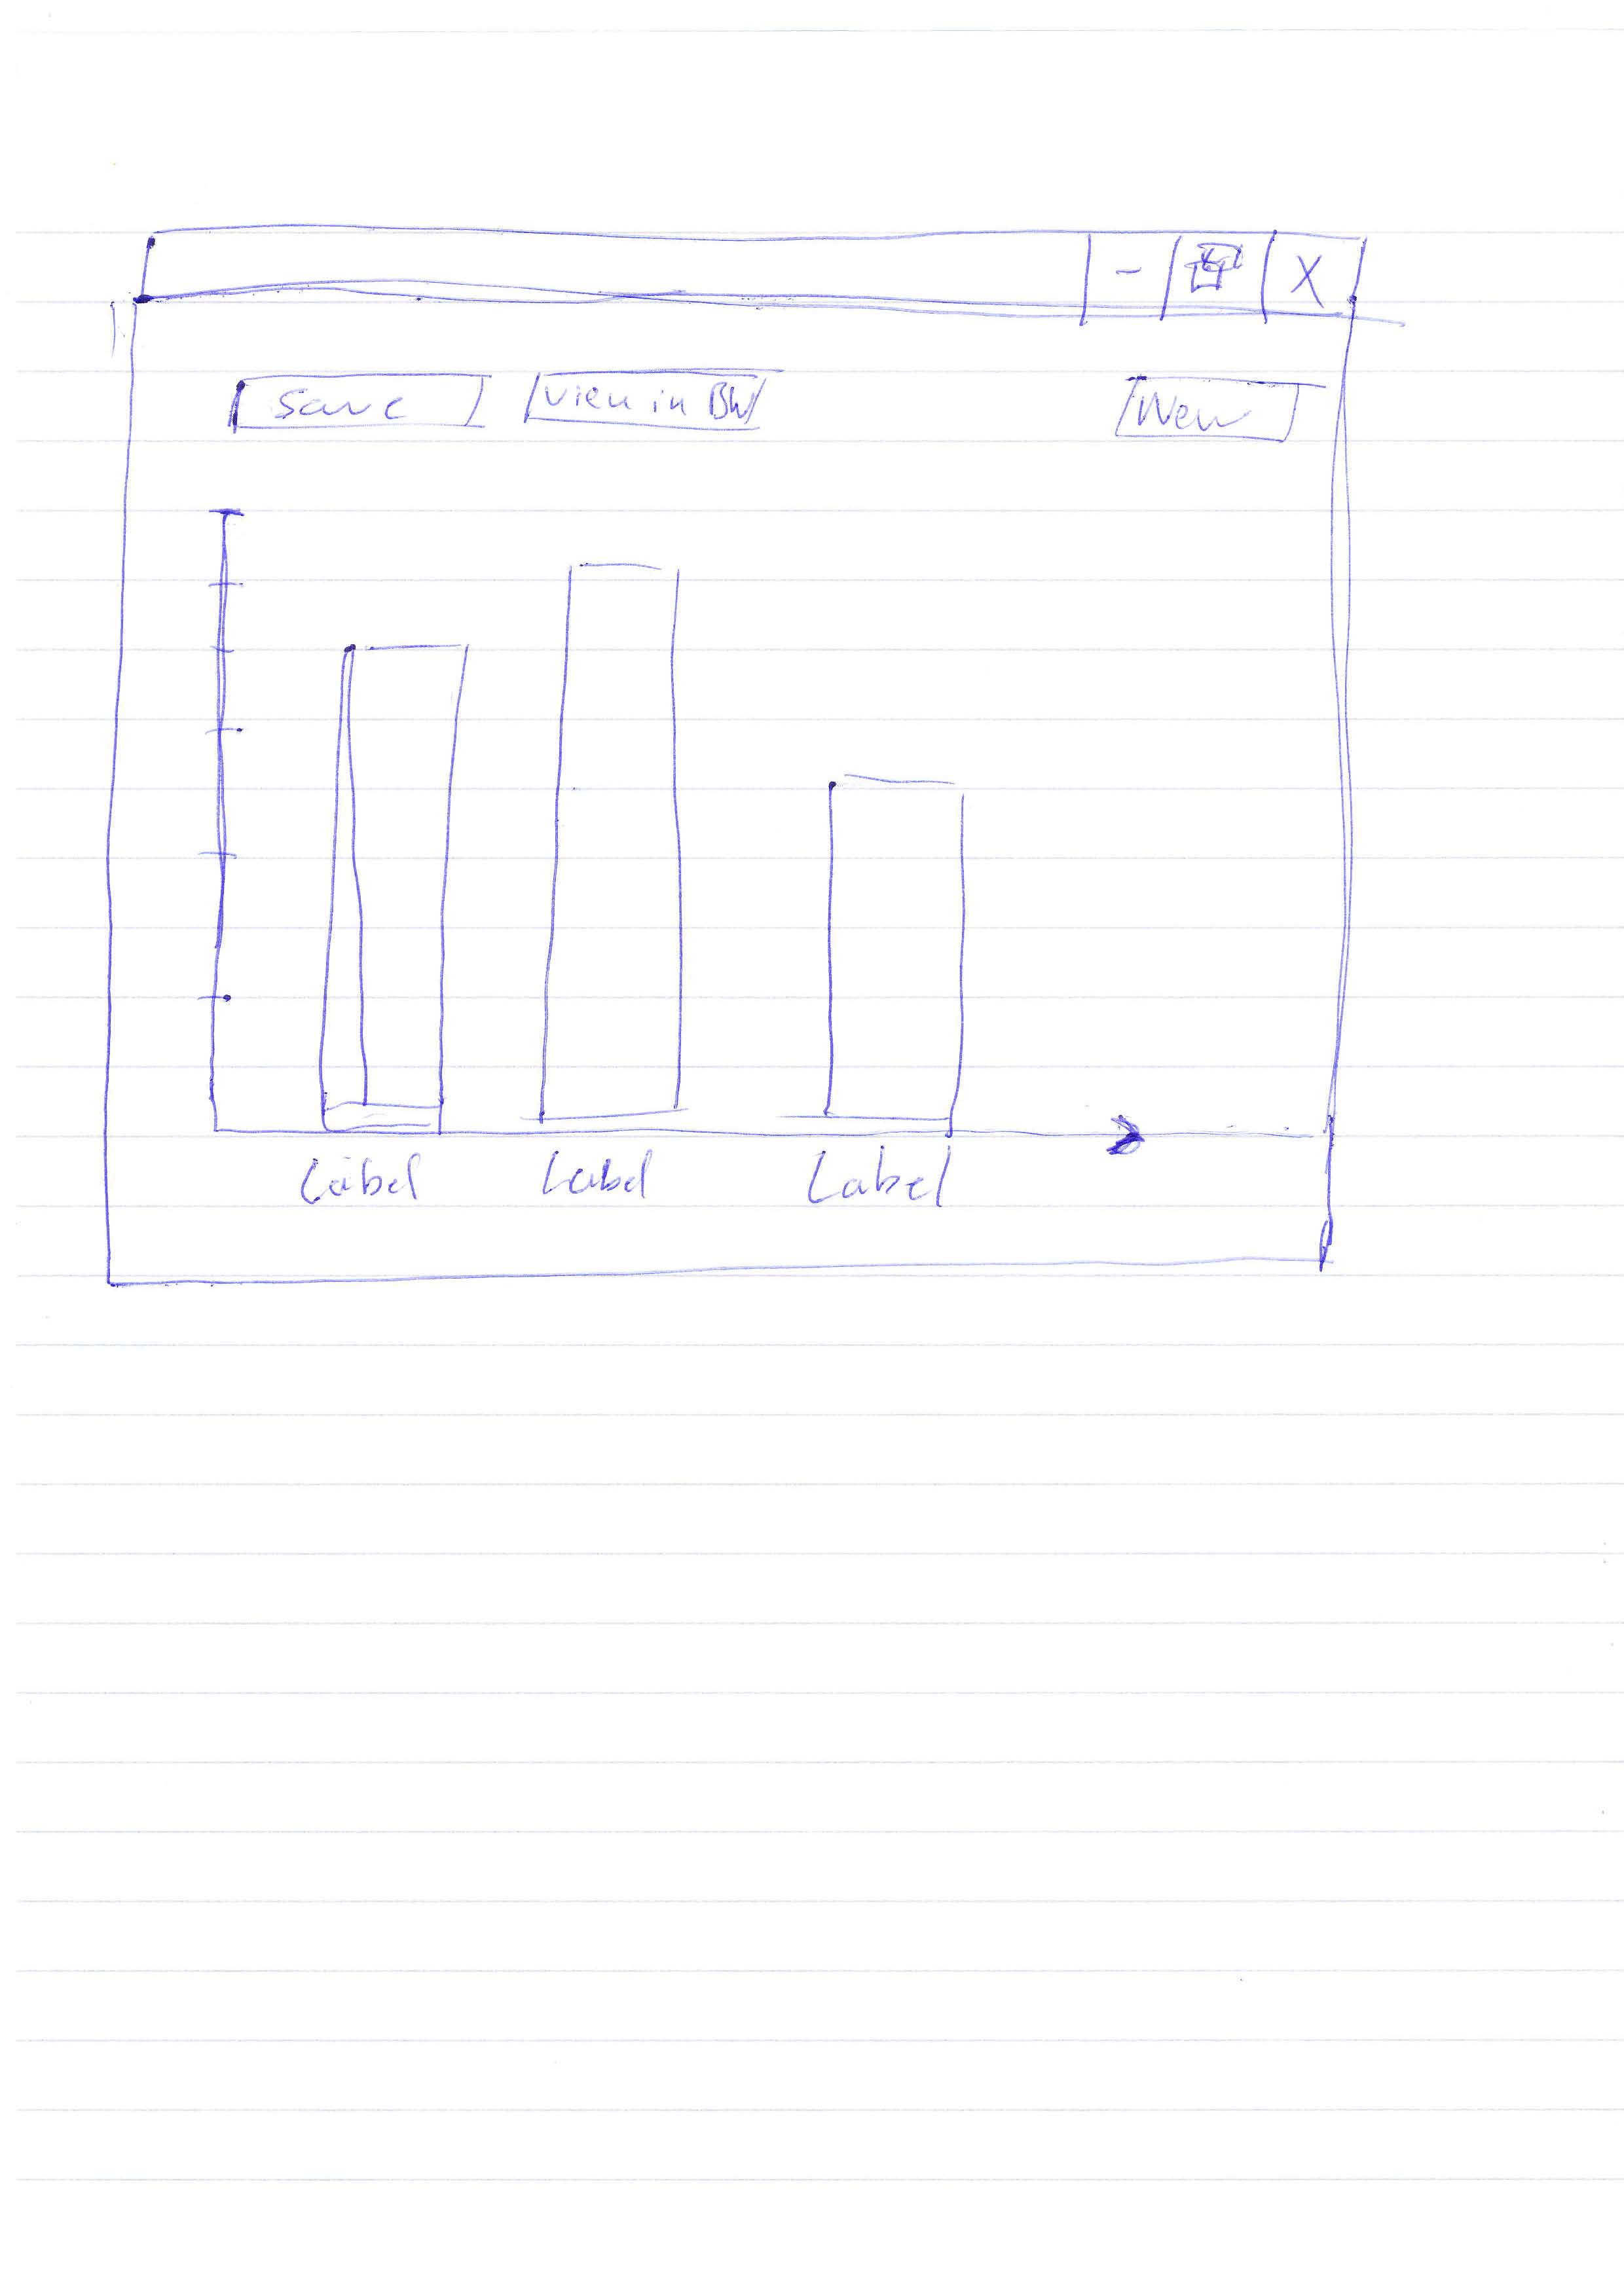 - X
Save View in BW New
Label Label Label